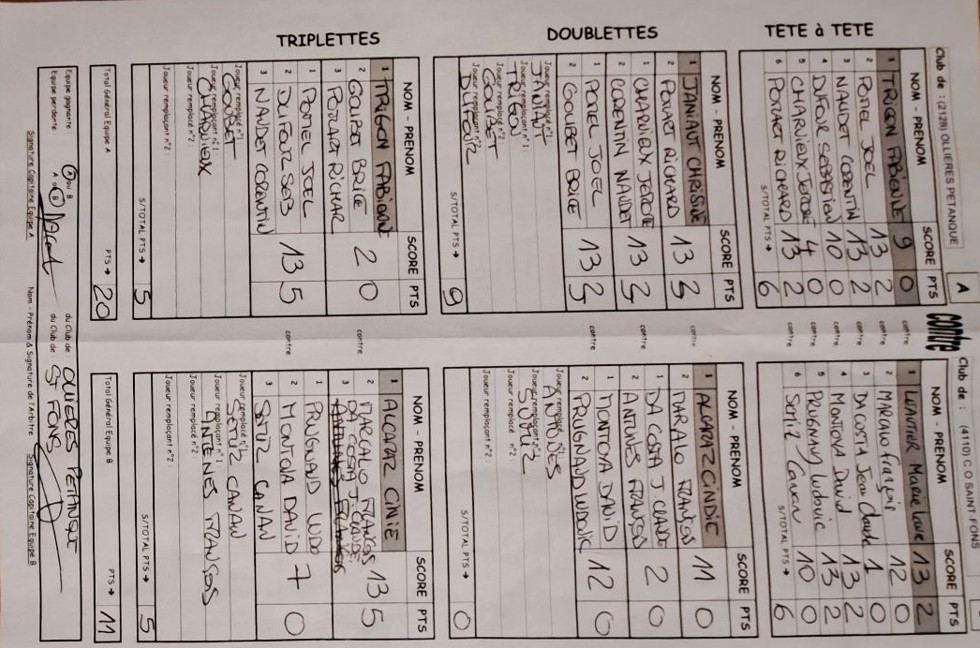 Club de : (2128) OLLIERES PETANQUE
A
contre
Club de : (4110) C O SAINT FONS
TETE à TETE
NOM - PRENOM SCORE PTS
1 TRIGON FABIENNE 9 0
2 POTIEL JOEL 13 2
3 NAUDET CORENTIN 13 2
4 DUFOUR SEBASTIEN 10 0
5 CHARVIEUX JEROME 4 0
6 POYART RICHARD 13 2
S/TOTAL PTS → 6
contre
contre
contre
contre
contre
contre
NOM - PRENOM SCORE PTS
1 Marie Laure 13 2
2 MARCALO françois 12 0
3 DA COSTA Jean Claude 1 0
4 MONTOYA David 13 2
5 PRUGNAUD Ludovic 13 2
6 10 0
S/TOTAL PTS → 6
DOUBLETTES
NOM - PRENOM SCORE PTS
1 JANIAUT CHRISINE
2 POYART RICHARD 13 3
1 CHARVIEUX JEROME
2 CORENTIN NAUDET 13 3
1 POTIEL JOEL
2 GOUBET BRICE 13 3
Joueur remplacé n°1:
JANIAUT
Joueur remplaçant n°1 :
TRIGON
Joueur remplacé n°2:
GOUBET
Joueur remplaçant n°2 :
DUFOUR
S/TOTAL PTS → 9
contre
contre
contre
NOM - PRENOM SCORE PTS
1 ALCARAZ CINDIE
2 MARALO FRANSOS 11 0
1 DA COSTA J. CLAUDE
2 ANTUNES FRANSOS 2 0
1 MONTOYA DAVID
2 PRUGNAUD LUDOVIC 12 0
Joueur remplacé n°1:
ANTUNES
Joueur remplaçant n°1 :
Joueur remplacé n°2 :
Joueur remplaçant n°2 :
S/TOTAL PTS → 0
TRIPLETTES
NOM - PRENOM SCORE PTS
1 TRIGON FABIENNE
2 GOUBET BRICE
3 POYART RICHAR 2 0
1 POTIEL JOEL
2 DUFOUR SEB
3 NAUDET CORENTIN 13 5
Joueur remplacé n°1:
GOUBET
Joueur remplaçant n°1 :
CHARVIEUX
Joueur remplacé n°2 :
Joueur remplaçant n°2 :
S/TOTAL PTS → 5
contre
contre
NOM - PRENOM SCORE PTS
1 ALCARAZ CINIE
2 MARCALO FRANCOS
DA COSTA J. CLAUDE
3 13 5
1 PRUGNAUD LUDO
2 MONTOYA DAVID
3 CANAN 7 0
Joueur remplacé n°1:
CANAN
Joueur remplaçant n°1 :
FRANSOS
Joueur remplacé n°2 :
Joueur remplaçant n°2 :
S/TOTAL PTS → 5
Total Général Equipe A PTS → 20
Total Général Equipe B PTS → 11
Equipe gagnante A ou B du Club de : OLLIERES PETANQUE
Equipe perdante A ou B du Club de : ST FONS
Signature Capitaine Equipe A
Nom - Prénom & Signature de l'Arbitre
Signature Capitaine Equipe B